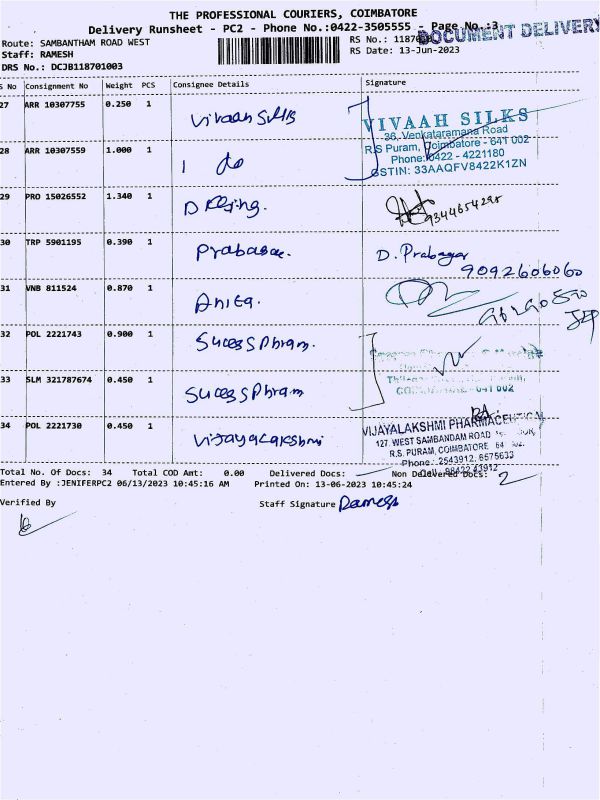 THE PROFESSIONAL COURIERS, COIMBATORE
Delivery Runsheet - PC2 - Phone No.:0422-3505555 - Page No.:3
DOCUMENT DELIVERY
Route: SAMBANTHAM ROAD WEST
RS No.: 1187010
Staff: RAMESH
RS Date: 13-Jun-2023
DRS No.: DCJB118701003
S No Consignment No Weight PCS Consignee Details Signature
27 ARR 10307755 0.250 1 Vivaah Silks
VIVAAH SILKS
36, Venkataramana Road
28 ARR 10307559 1.000 1 I do
R.S Puram, Coimbatore - 641 002
Phone: 0422 - 4221180
GSTIN: 33AAQFV8422K1ZN
29 PRO 15026552 1.340 1
9344654298
30 TRP 5901195 0.390 1 Prabagar.
D. Prabagar
9092606060
31 VNB 811524 0.870 1 Anita.
32 POL 2221743 0.900 1 Sucess Phram.
33 SLM 321787674 0.450 1 Sucess Phram
641 002
34 POL 2221730 0.450 1 Vijayalakshmi
VIJAYALAKSHMI PHARMACEUTICAL
127, WEST SAMBANDAM ROAD
R.S. PURAM, COIMBATORE
Phone: 2543912, 6575633
Cell: 98422 43912
Total No. Of Docs: 34 Total COD Amt: 0.00 Delivered Docs: Non Delivered Docs: 2
Entered By :JENIFERPC2 06/13/2023 10:45:16 AM Printed On: 13-06-2023 10:45:24
Verified By Staff Signature Ramesh